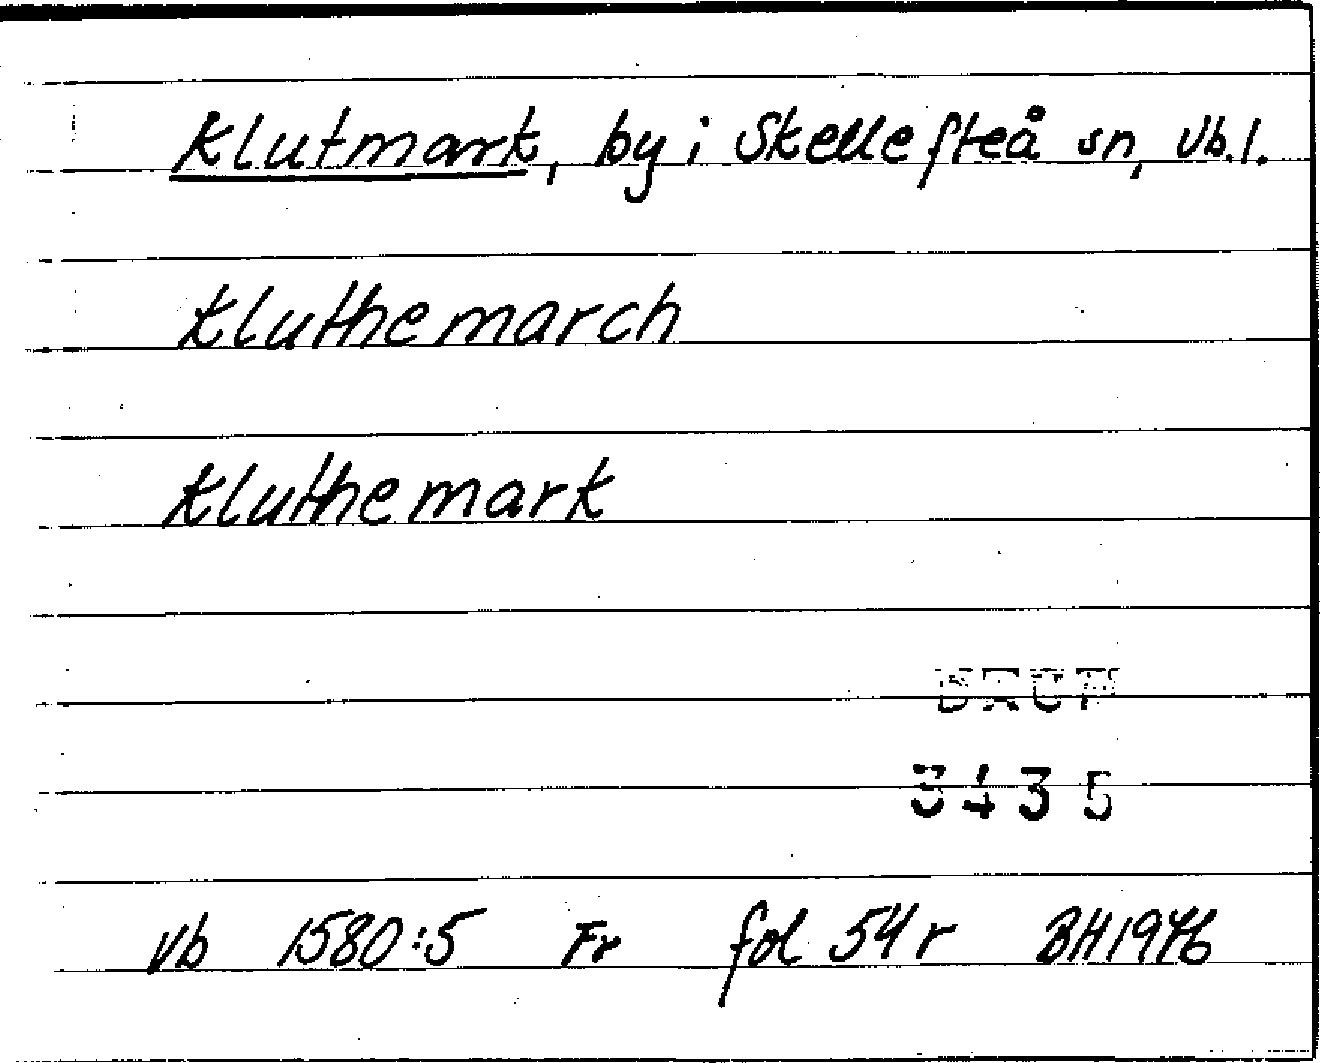 Klutmark, by i Skellefteå sn, Vb.l.
Kluthemarch
Kluthemark
3435
Vb 1580:5 Fr fol 54r BH1976